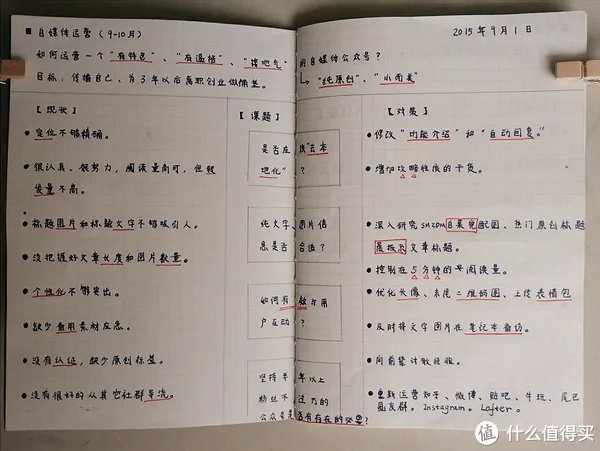 ■ 自媒体运营（9-10月）
2015年9月1日
如何运营一个"有特色"、"有逼格"、"接地气"的自媒体公众号？
目标：传播自己、为3年以后离职创业做铺垫。
↳ "纯原创"、"小而美"
【现状】
● 定位不够精确。
● 很认真、很努力，阅读量尚可，但转发量不高。
● 标题图片和标题文字不够吸引人。
● 没把握好文章长度和图片数量。
● 个性化不够突出。
● 缺少备用素材应急。
● 没有认证，缺少原创标签。
● 没有很好的从其它社群导流。
【课题】
是否应该"去本地化"？
纯文字、图片信息是否合适？
如何有效与用户互动？
坚持半年以上
粉丝不过万的
公众号是否有存在的必要？
【对策】
● 修改"功能介绍"和"自动回复。"
● 增加攻略性质的干货。
● 深入研究SMZDM自晨兑配图、热门原创标题
展板次文章标题。
● 控制在5分钟的关阅读量。
● 优化头像、末尾二维码图、上传表情包
● 及时将文字图片在笔记本备份。
● 向前辈讨教经验。
● 重新运营知乎、微博、贴吧、牛玩、尾巴
面友群。Instagram。Lofter。
值 什么值得买